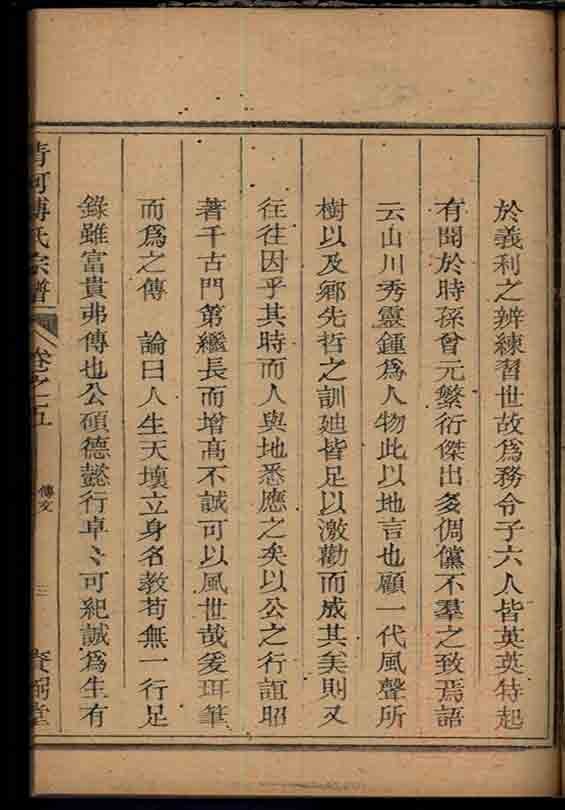 於義利之辨練習世故爲務令子六人皆英英特起
有聞於時孫曾元繁衍傑出多倜儻不羣之致焉語
云山川秀靈鍾爲人物此以地言也顧一代風聲所
樹以及鄉先哲之訓廸皆足以激勸而成其美則又
往往因乎其時而人與地悉應之矣以公之行誼昭
著千古門第繼長而增高不誠可以風世哉爰珥筆
而爲之傳　論曰人生天壤立身名教苟無一行足
錄雖富貴弗傳也公碩德懿行卓〻可紀誠爲生有
清河傅氏宗譜　卷之五　傳文　三